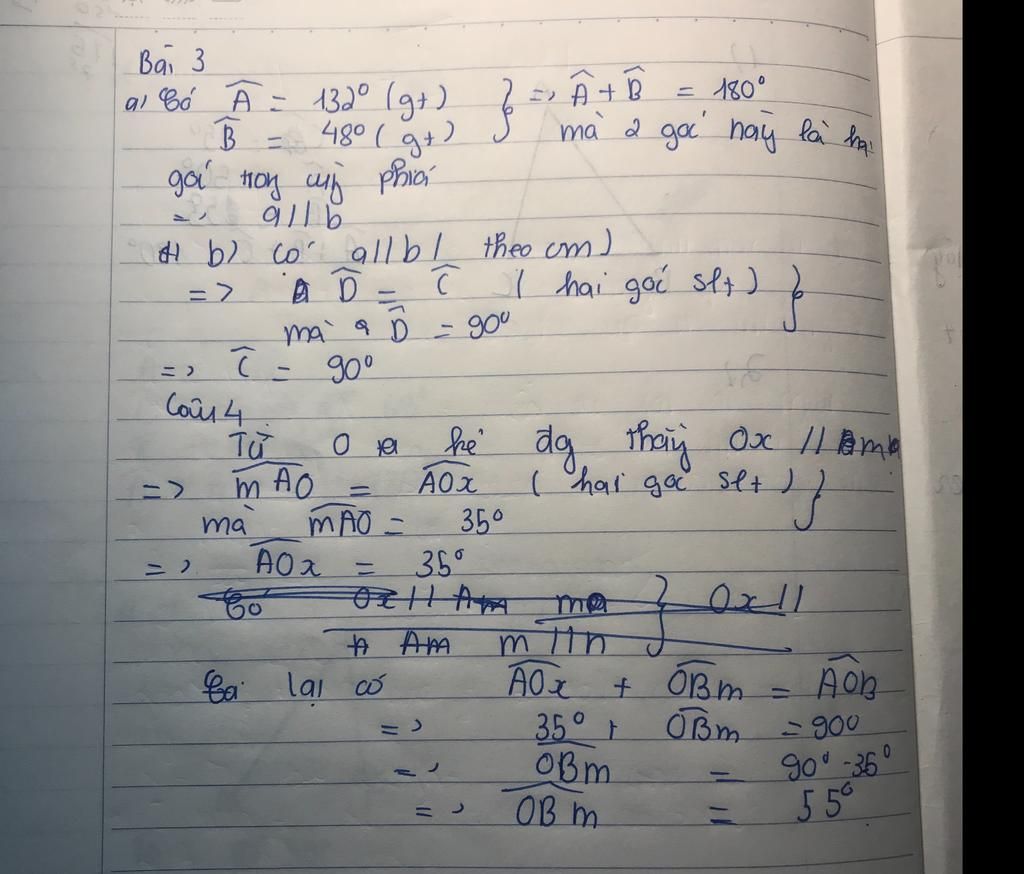 Bài 3
a) Có Â = 132° (gt) } => Â + B̂ = 180°
B̂ = 48° (gt) mà 2 góc này là hai
góc trong cùg phía
=> a // b
b) có a // b ( theo cm)
=> D̂ = Ĉ ( hai góc slt ) }
mà D̂ = 90°
=> Ĉ = 90°
Câu 4
Từ O kẻ đg thẳg Ox // ma
=> mAO = AOx ( hai góc slt ) }
mà mAO = 35°
=> AOx = 35°
Có Ox // Am } Ox //
Am m // n
lại có AOx + OBm = AOB
=> 35° + OBm = 90°
=> OBm = 90° - 35°
=> OBm = 55°